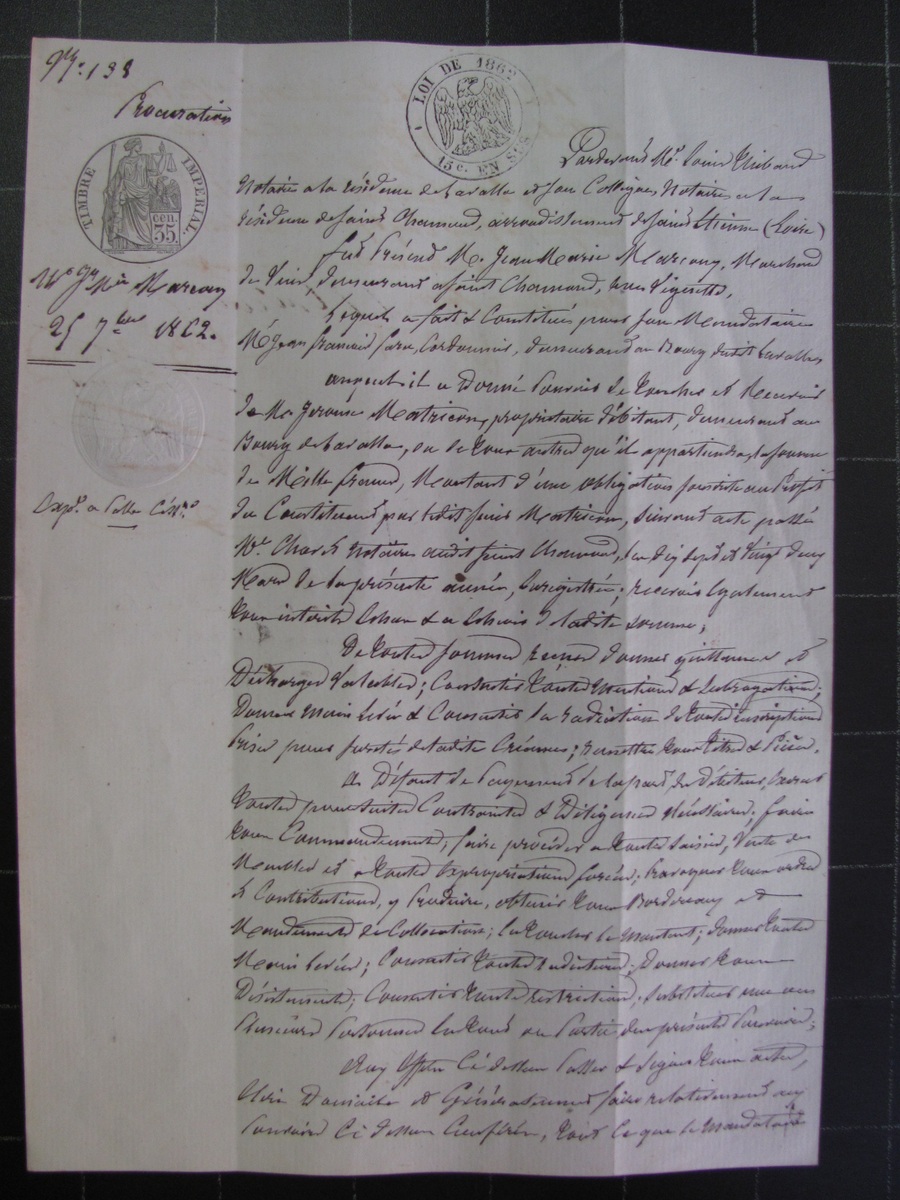 N.º 138
Procuration
LOI DE 1862
15 c. EN SUS
TIMBRE IMPERIAL.
35. cen.
M. Jn Mie Marcoux
25 7bre 1862.
Pardevant Me. Louis Thibaud
Notaire à la résidence de Lavalla et son Collègue, Notaire à la
résidence de Saint Chamond, arrondissement de Saint Etienne (Loire)
fut Présent M. Jean Marie Marcoux, Marchand
de vin, demeurant à Saint Chamond,
Lequel a fait & Constitué pour son Mandataire
M. Jean François, Cordonnier, demeurant au Bourg dudit Lavalla,
auquel il a Donné Pouvoir de Toucher et Recevoir
de M. Jérôme Matricon, propriétaire débitant, demeurant au
Bourg de Lavalla, ou de tous autres qu'il appartiendra, la somme
de Mille francs, Montant d'une obligation souscrite au Profit
du Constituant par ledit sieur Matricon, suivant acte passé
Me. notaire audit Saint Chamond, les dix sept et vingt deux
Mars de la présente année, enregistrée; recevoir également
tous intérêts échus & à échoir de ladite somme;
De toutes sommes reçues donner quittances et
Décharges Valables; Consentir toutes Mentions & Subrogations;
Donner Main levée & Consentir la radiation de toutes inscriptions
Prises pour sûreté de ladite Créance; remettre tous titres & Pièces.
A Défaut de Payement de la part du Débiteur, exercer
toutes poursuites Contraintes & Diligences Nécessaires; faire
tous Commandements; faire procéder à toutes saisies, Vente de
Meubles et à toutes Expropriations forcées; Provoquer tous ordres
& Contributions, y Produire, obtenir tous Bordereaux et
Mandements de Collocation; en toucher le Montant; donner toutes
Main levées; Consentir toutes radiations; Donner tous
Désistements; Consentir toute restriction; substituer une ou
Plusieurs Personnes en tout ou Partie des présents Pouvoirs;
Aux Effets Ci dessus Passer & Signer tous actes,
élire Domicile et Généralement faire relativement aux
Pouvoirs Ci dessus Conférés, tout ce que le Mandataire